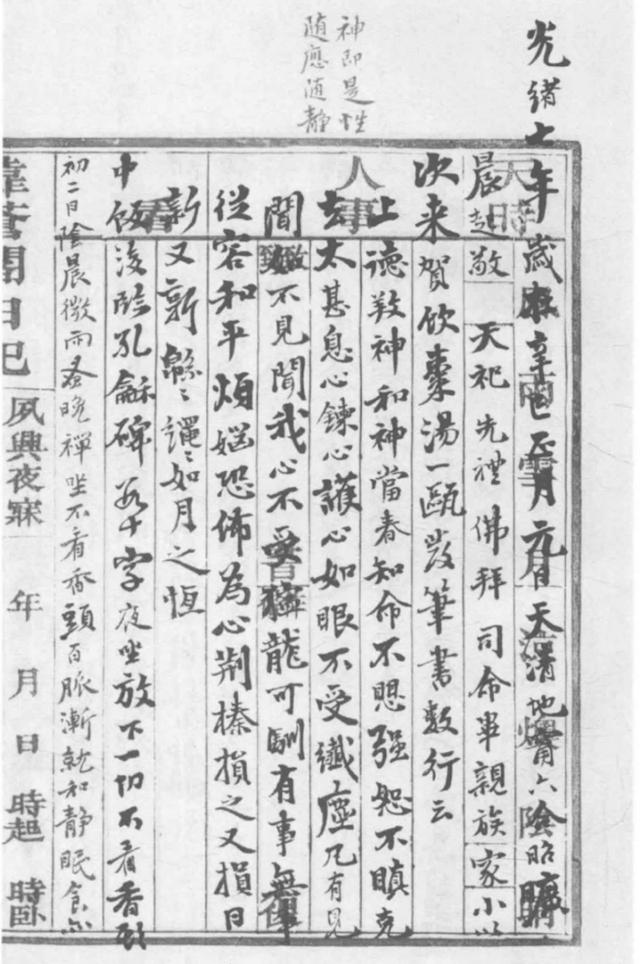 神即是性
随應随静
光緒七年歲在辛巳正月元日天清地寧六陰昭曠
晨起敬天祀先禮佛拜司命畢親族家小以
次来賀飲棗湯一甌發筆書数行云
上德敦神和神當春知命不思强恕不瞋克
去太甚息心鍊心護心如眼不受纖塵凡有見
聞如不見聞我心不受獰龍可馴有事無事
從容和平煩惱恐怖為心荆榛損之又損日
新又新緜緜繩繩如月之恆
中飯後臨孔龢碑若干字夜坐放下一切不看香頭
初二日陰晨微雨蚤晚禪坐不看香頭百脈漸就和静眠食亦
日記
夙興夜寐 年 月 日 時起 時卧
人事